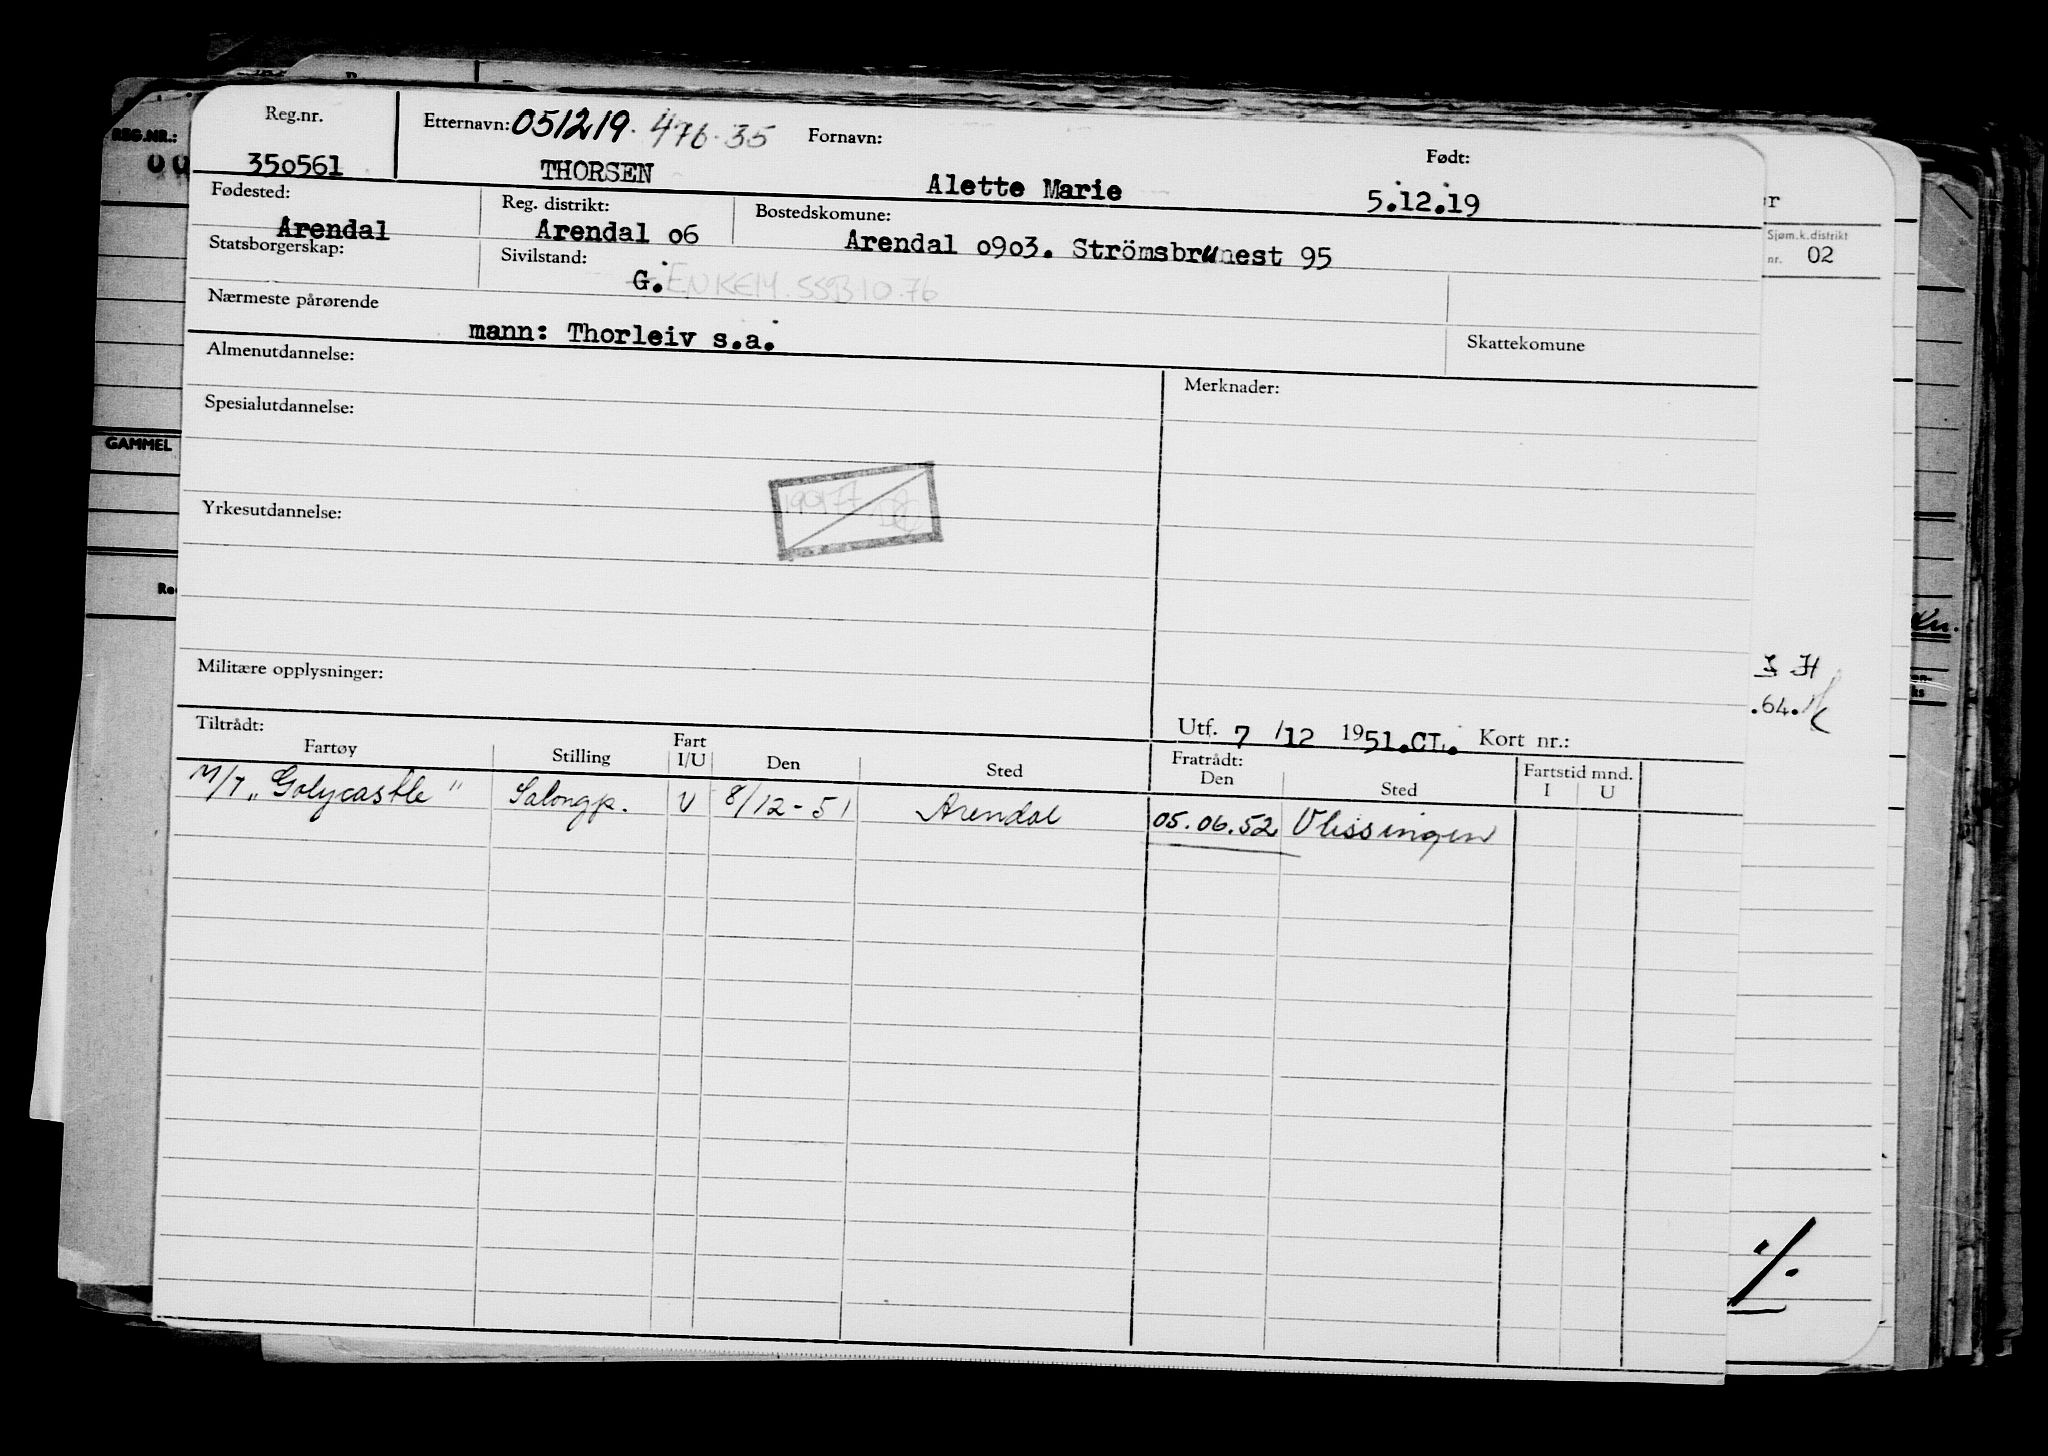 Reg.nr. Etternavn: 051219. 476.35 Fornavn: Født:
350561 THORSEN Alette Marie 5.12.19
Fødested: Reg. distrikt: Bostedskomune:
Arendal Arendal 06 Arendal 0903. Strömsbrunest 95
Statsborgerskap: Sivilstand:
G. ENKEM. SSB 10.76
Nærmeste pårørende
mann: Thorleiv s.a.
Almenutdannelse: Skattekomune
Merknader:
Spesialutdannelse:
Yrkesutdannelse:
Militære opplysninger:
Utf. 7 /12 1951.CL. Kort nr.:
Tiltrådt: Fratrådt: Fartstid mnd.
Fartøy Stilling Fart I/U Den Sted Den Sted I U
M/T "Golycastle" Salongp. U 8/12-51 Arendal 05.06.52 Vlissingen
REG.NR.:
GAMMEL
Sjøm.k.distrikt
nr. 02
.64.